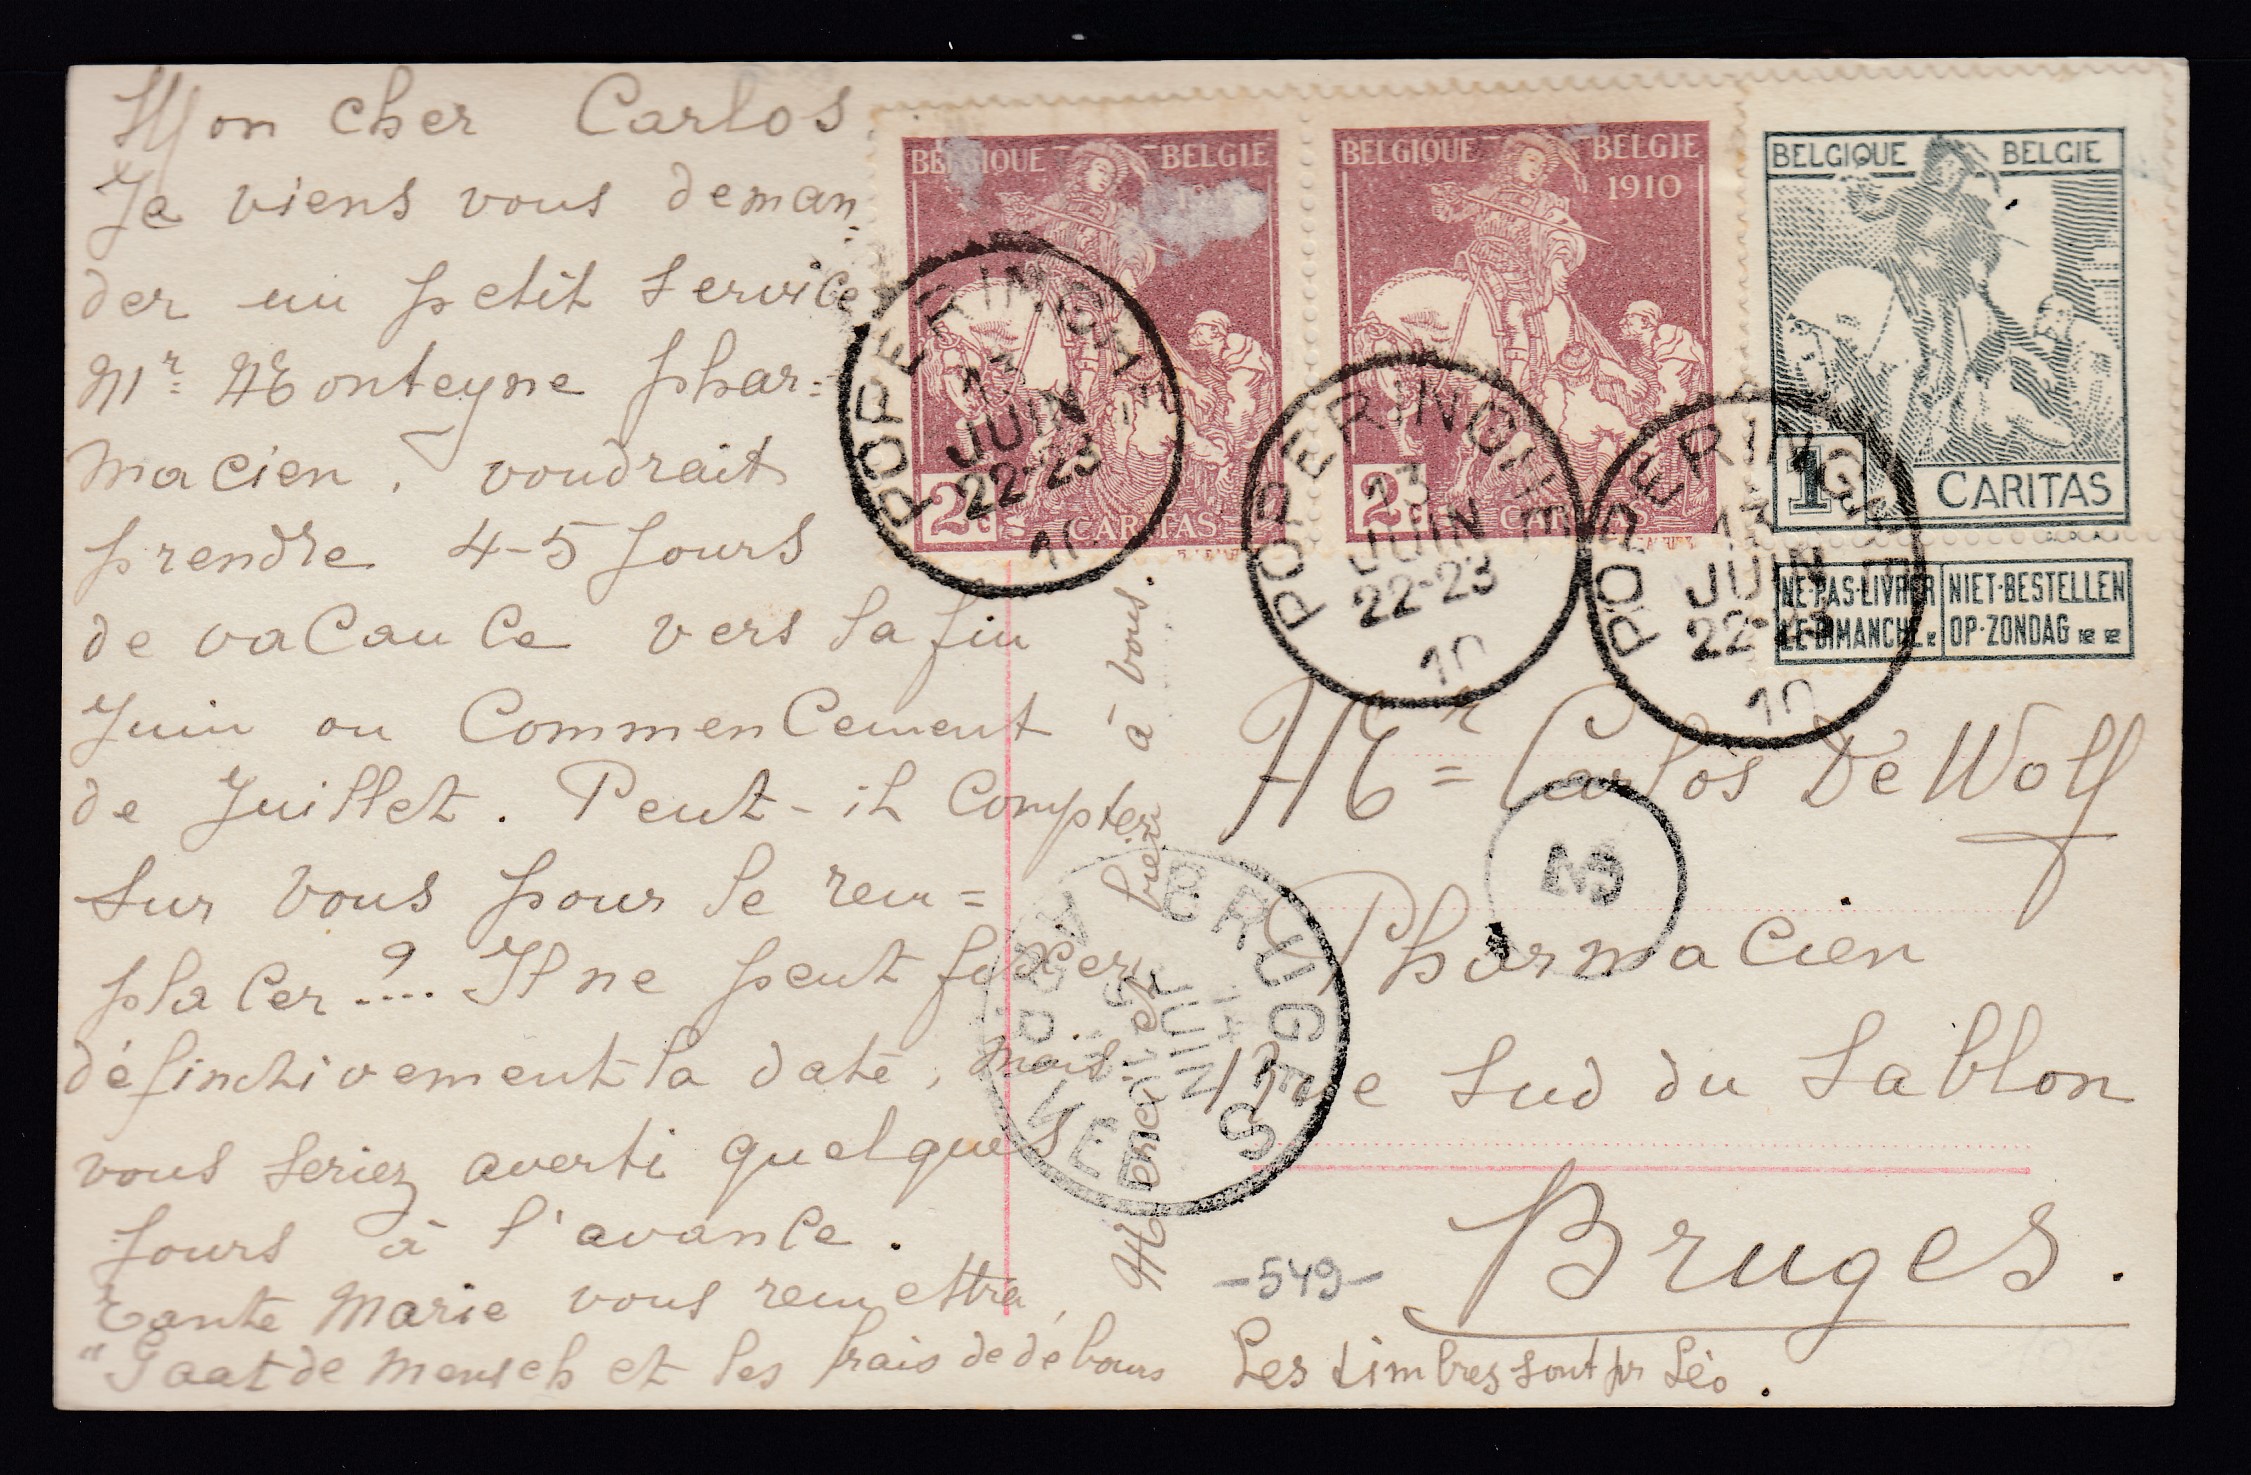 Mon cher Carlos
Je viens vous deman
der un petit service
Mr Monteyne phar=
macien, voudrait
prendre 4-5 jours
de vacance vers la fin
Juin ou commencement
de Juillet. Peut-il compter
sur vous pour le rem=
placer?.... Il ne peut fixer
définitivement la date, mais
vous seriez averti quelques
jours à l'avance.
Tante Marie vous remettra
de Mensch et les frais de débours
Merci et bien à vous.
BELGIQUE BELGIE
2c CARITAS
BELGIQUE BELGIE
1910
2c CARITAS
BELGIQUE BELGIE
1c CARITAS
NE·PAS·LIVRER LE·DIMANCHE
NIET·BESTELLEN OP·ZONDAG
POPERINGHE
13
JUIN
22-23
10
POPERINGHE
13
JUIN
22-23
10
POPERINGHE
13
JUIN
22-23
10
BRUGES
14
JUIN
Mr = Carlos De Wolf
Pharmacien
rue Sud du Sablon
Bruges.
-549-
Les timbres sont pr Léo.